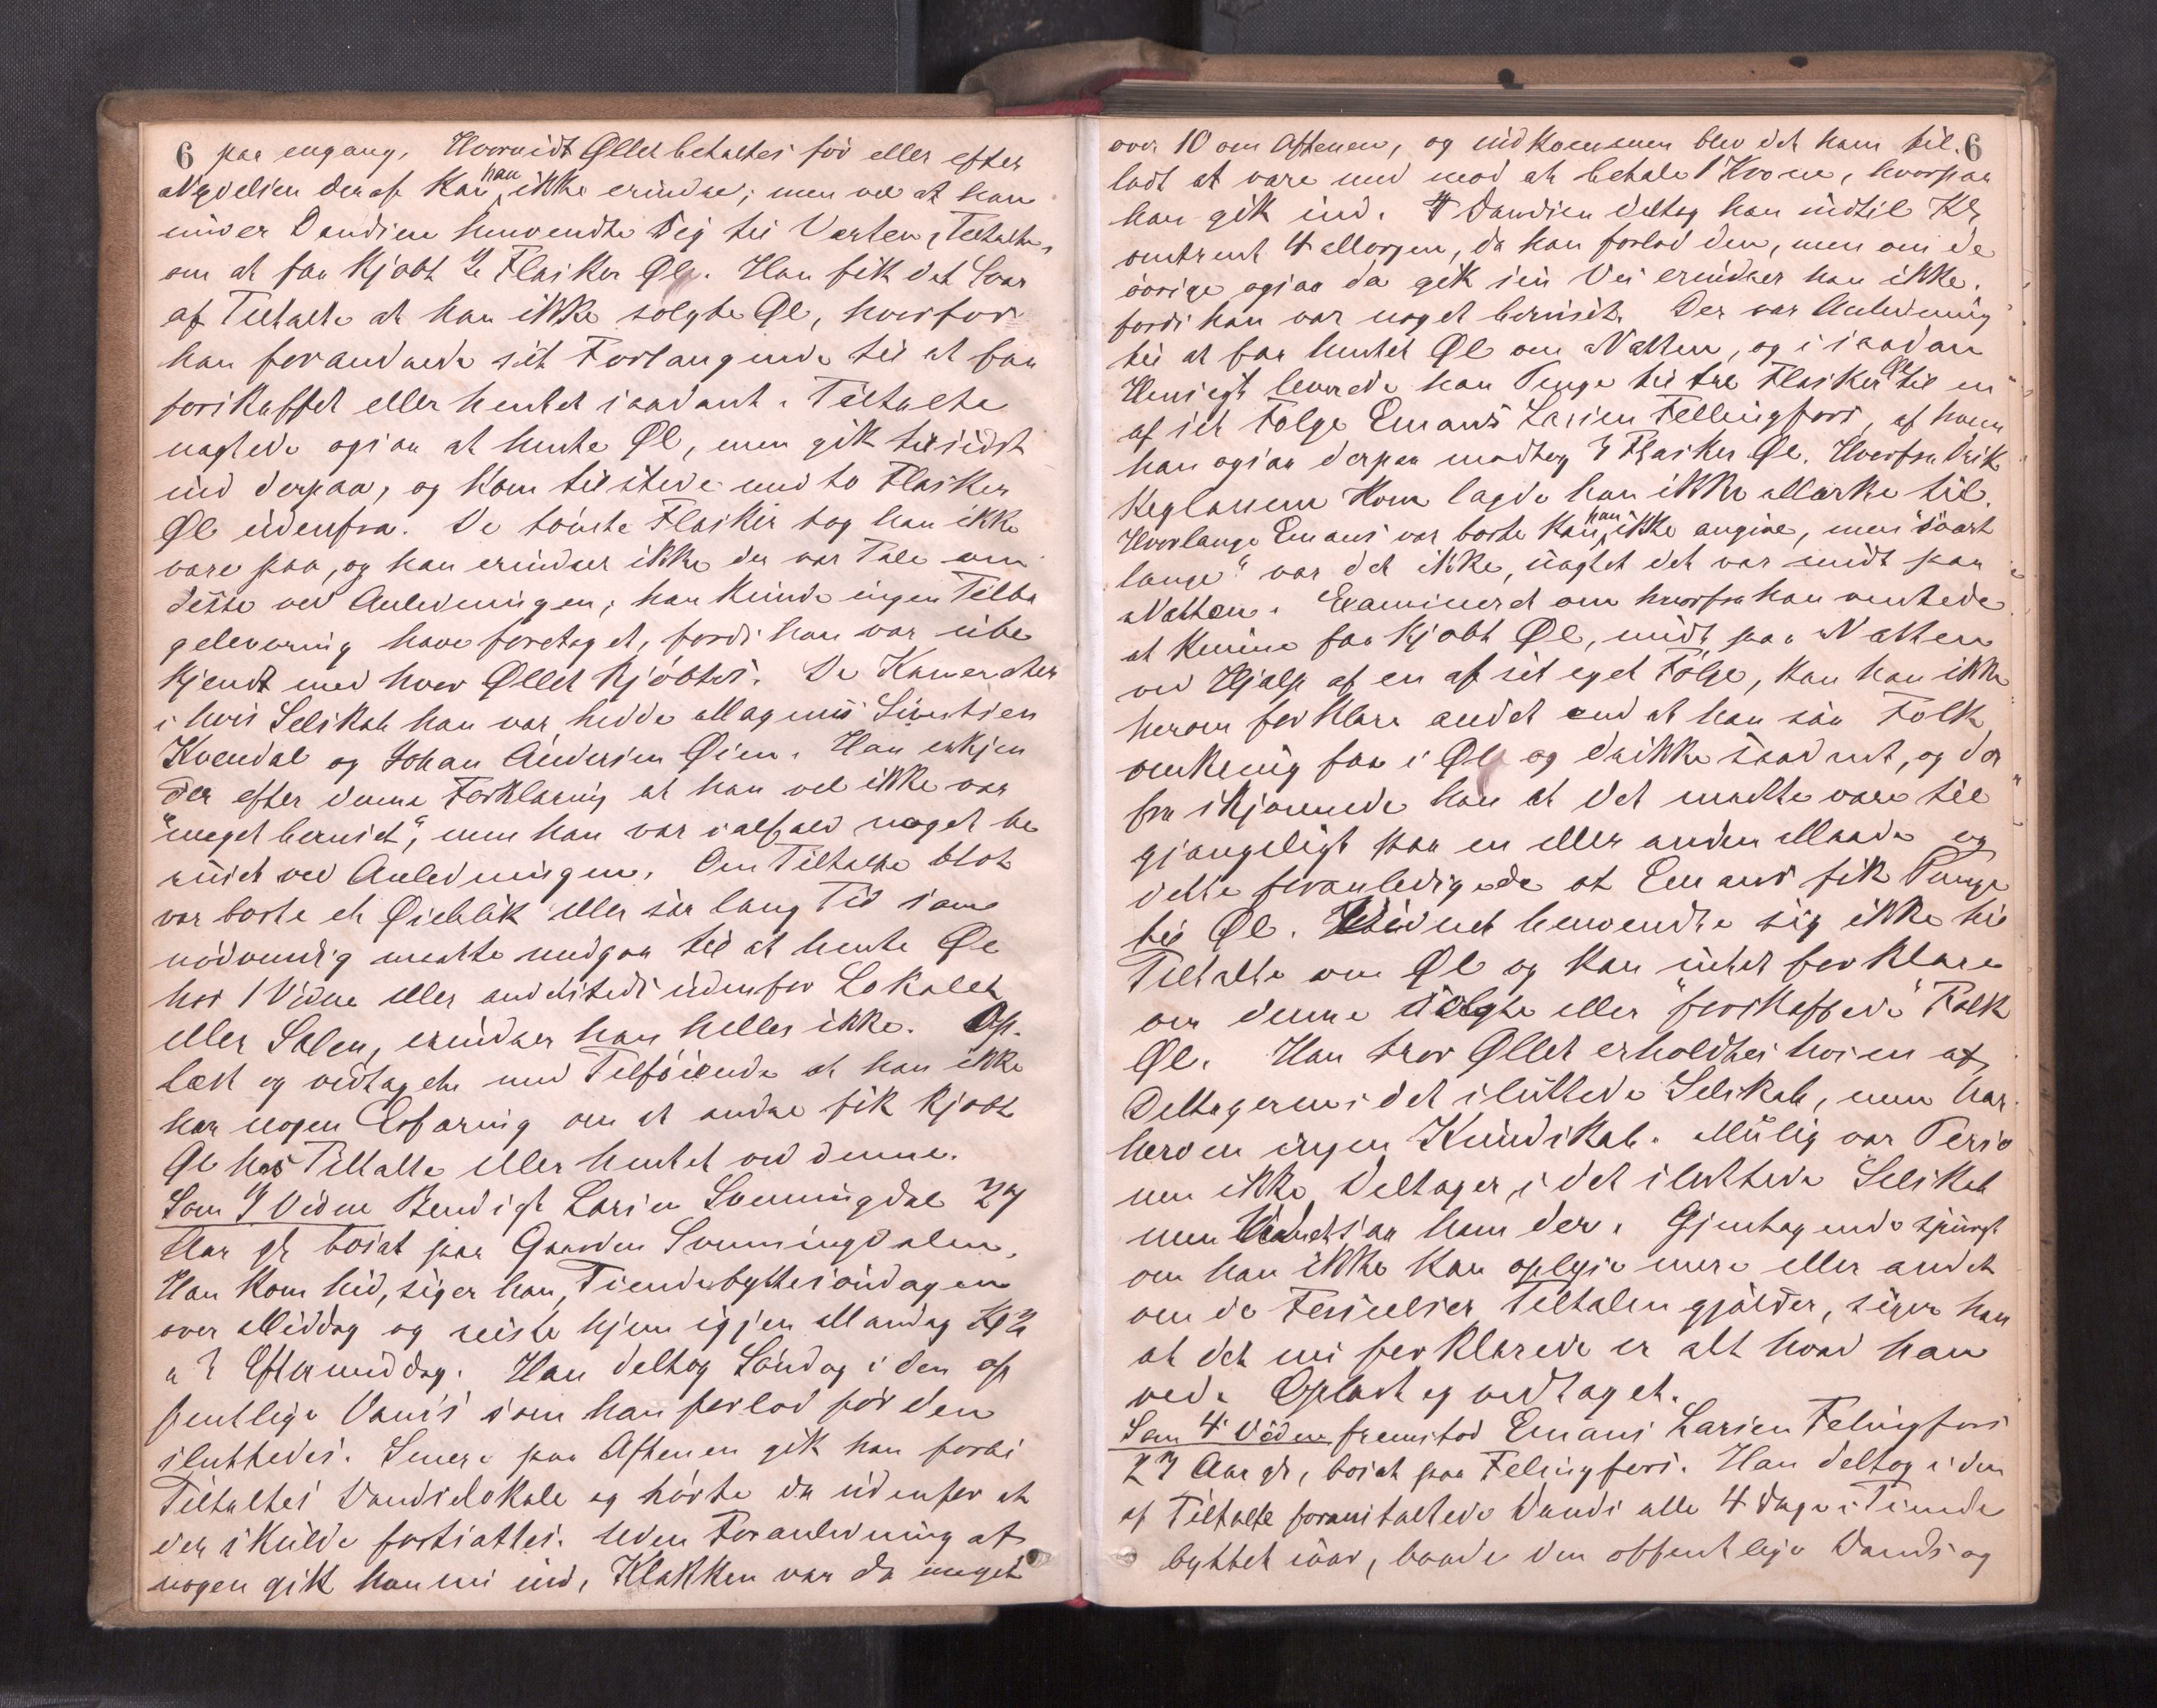 6 paa engang. Hvorvidt Øllet betaltes før eller efter
Nydelsen deraf kan han ikke erindre; men ved at han
under Dandsen henvendte sig til Værten, Tiltalte,
om at faa kjøbt 2 Flasker Øl. Han fik det Svar
af Tiltalte at han ikke solgte Øl, hvorfor
han forandrede sit Forlangende til at faa
forskaffet eller hentet saadant. Tiltalte
nægtede ogsaa at hente Øl, men gik tilsidst
ind derpaa, og kom tilstede med to Flasker
Øl udenfra. De tomte Flasker tog han ikke
vare paa, og han erindrer ikke der var Tale om
disse ved Anledningen; han kunde ingen Tilba
gelevering have foretaget, fordi han var ube
kjendt med hvor Øllet kjøbtes. De Kamerater
i hvis Selskab han var, hedde Magnus Sivertsen
Kvendal og Johan Andersen Øien. Han erkjen
der efter denne Forklaring at han vel ikke var
"meget beruset", men han var ialfald noget be
ruset ved Anledningen. Om Tiltalte blot
var borte et Øieblik eller saa lang Tid som
nødvendig maatte medgaa til at hente Øl
hos 1 Vidne eller andetsteds udenfor Lokalet
eller Salen, erindrer han heller ikke. Op-
læst og vedtaget med Tilføiende at han ikke
har nogen Erfaring om at andre fik kjøbt
Øl hos Tiltalte eller hentet ved denne.
Som 3 Vidne Bendigt Larsen Svenningdal 27
Aar gl. bosat paa Gaarden Svenningdalen.
Han kom hid, siger han, Tiendebyttesøndagen
over Middag og reiste hjem igjen Mandag Kl 2
a 3 Eftermiddag. Han deltog Søndag i den of
fentlige Dands som han forlod før den
sluttedes. Senere paa Aftenen gik han forbi
Tiltaltes Dandselokale og hørte da udenfor at
der skulde fortsættes. Uden Foranledning af
nogen gik han nu ind, Klokken var da meget
over 10 om Aftenen, og indkommen blev det ham til- 6
ladt at være med mod at betale 1 Krone, hvorpaa
han gik ind. I Dandsen deltog han indtil Kl
omtrent 4 Morgen, da han forlod den, men om de
øvrige ogsaa da gik sin Vei erindrer han ikke,
fordi han var noget beruset. Der var Anledning
til at faa hentet Øl om Natten, og i saadan
Hensigt leverede han Penge til tre Flasker Øl til en
af sit Følge Emans Larsen Fellingfors, af hvem
han ogsaa derpaa modtog 3 Flasker Øl. Hvorfra Drik
ken kom lagde han ikke Mærke til.
Hvorlænge Emans var borte kan han ikke angive, men "svært
længe" var det ikke, uagtet det var midt paa
Natten. Examineret om hvorfra han ventede
at kunne faa kjøbt Øl, midt paa Natten
ved Hjælp af en af sit eget Følge, kan han ikke
herom forklare andet end at han saa Folk
omkring faa i Øl og drikke saadant, og der
fra skjønnede han at det maatte være til
gjængeligt paa en eller anden Maade og
dette foranledigede at Emans fik Penge
til Øl. Vidnet henvendte sig ikke til
Tiltalte om Øl og kan intet forklare
om denne solgte eller "forskaffede" Folk
Øl. Han tror Øllet erholdtes hos en af
Deltagerne i det sluttede Selskab, men har
herom ingen Kundskab. Mulig var Perso
nen ikke Deltager i det sluttede Selskab
men Vidnet saa ham der. Gjentagende spurgt
om han ikke kan oplyse mere eller andet
om de Forseelser Tiltalen gjælder, siger han
at det nu forklarede er alt hvad han
ved. Oplæst og vedtaget.
Som 4 Vidne fremstod Emans Larsen Felingfors
23 Aar gl, bosat paa Felingfors. Han deltog i den
af Tiltalte foranstaltede Dands alle 4 Dage i Tiende
byttet iaar, baade den offentlige Dands og